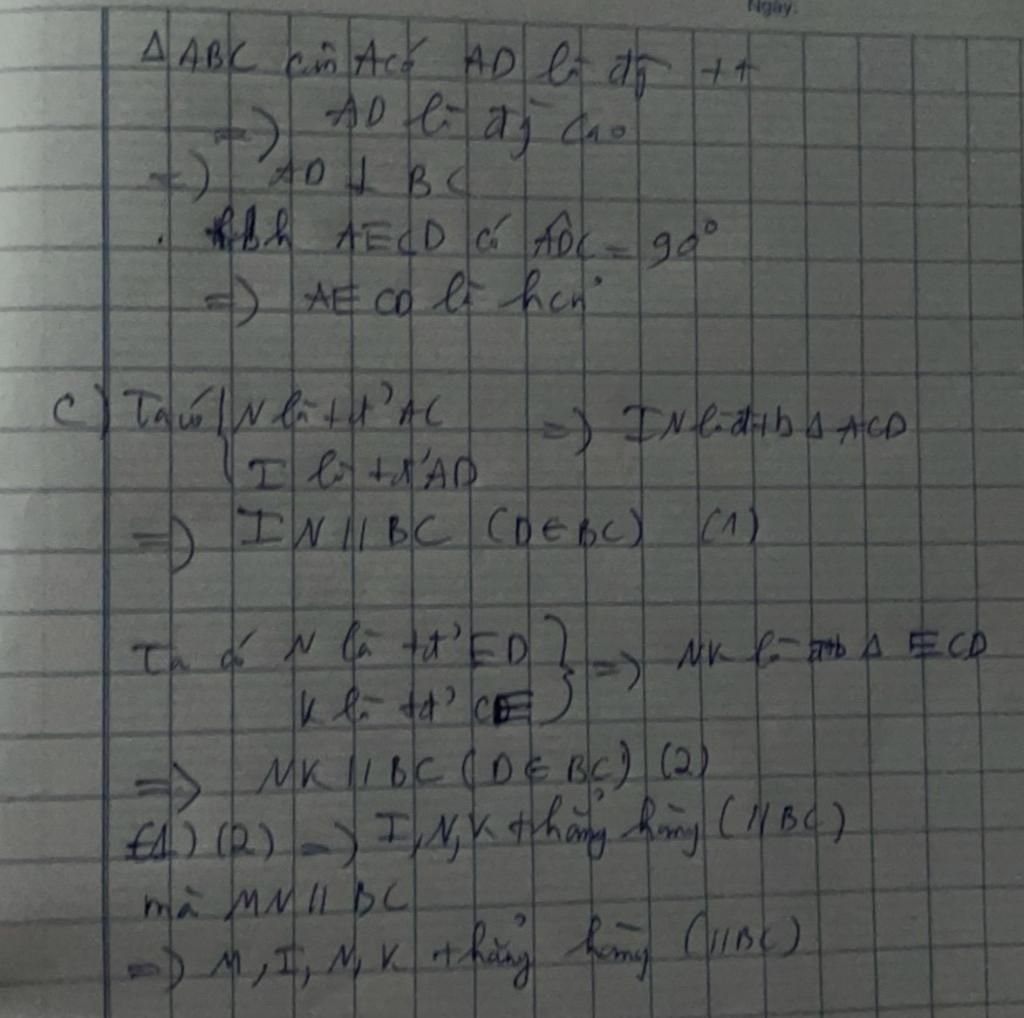 Ngày.
Δ ABC cân A có AD là đg tt
=> AD là đg cao
=> AD ⊥ BC
. hbh AECD có ADC = 90°
=> AECD là hcn
c) Ta có { N là tđ' AC => IN là đtb Δ ACD
I là tđ' AD
=> IN // BC (D ∈ BC) (1)
Ta có N là tđ' ED } => NK là đtb Δ ECD
K là tđ' CE
=> NK // BC (D ∈ BC) (2)
(1) (2) => I, N, K thẳng hàng (// BC)
mà MN // BC
=> M, I, N, K thẳng hàng (// BC)